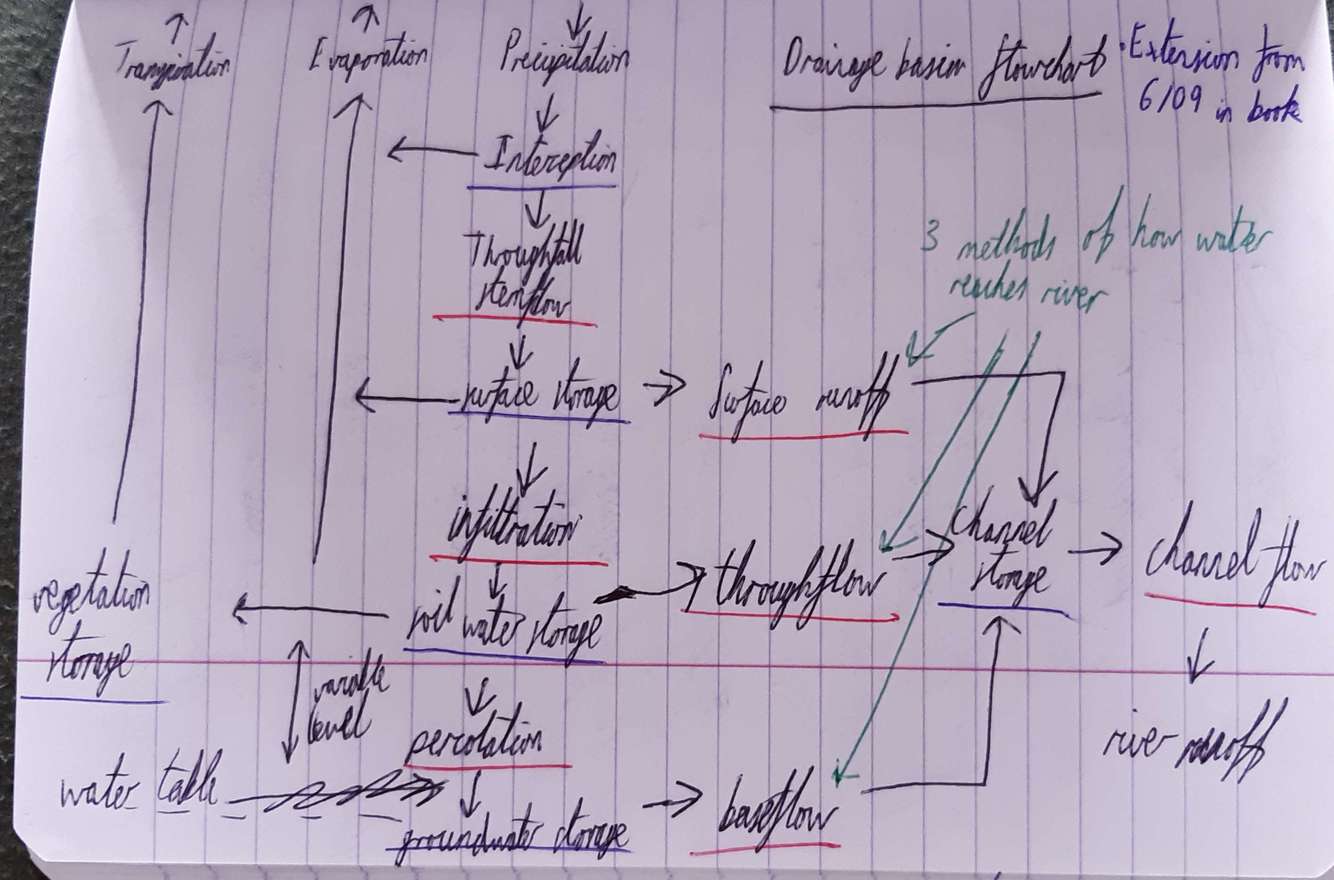 Transpiration
Evaporation
Precipitation
Drainage basin flowchart
Extension from
6/09 in book
Interception
Throughfall
stemflow
3 methods of how water
reaches river
surface storage
Surface runoff
infiltration
soil water storage
throughflow
Channel
storage
channel flow
vegetation
storage
variable
level
percolation
river runoff
water table
groundwater storage
baseflow